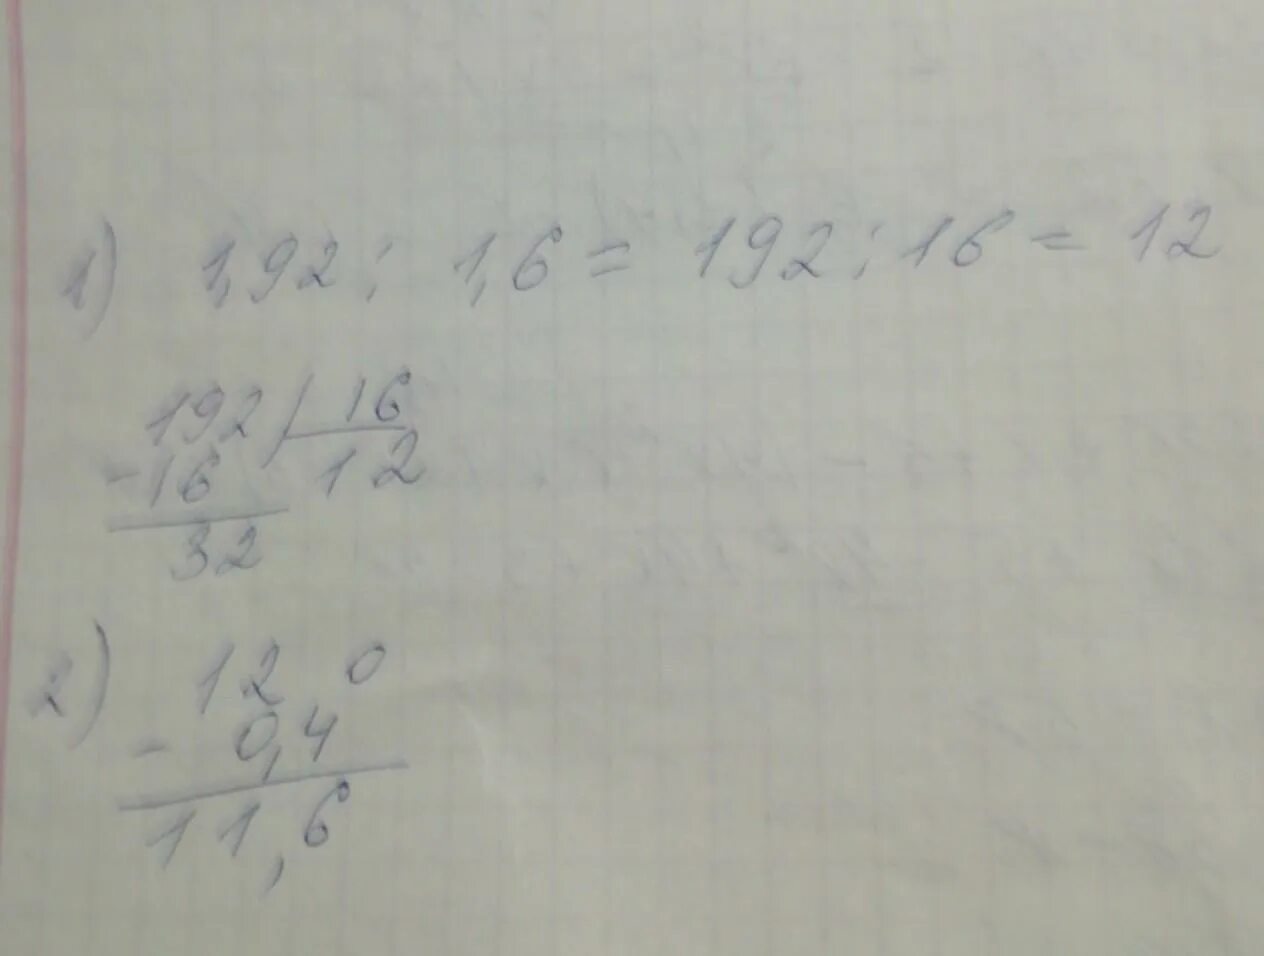 1) 1,92 : 1,6 = 192 : 16 = 12
192 | 16
-16 12
32
2) 12,0
- 0,4
11,6